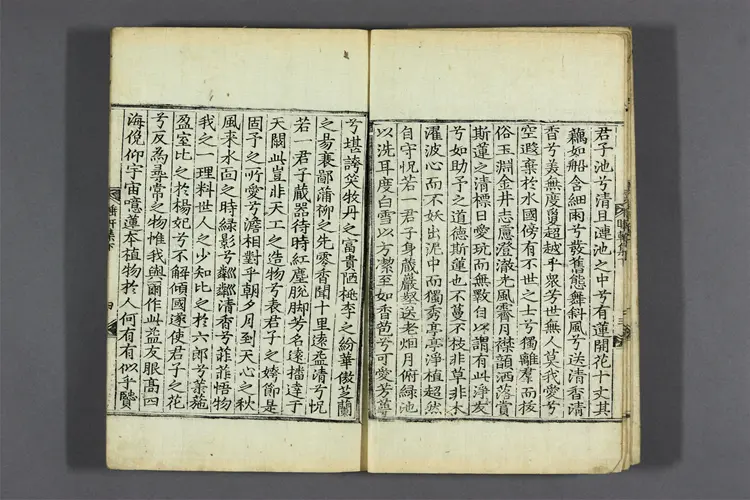 君子池兮淸且漣池之中兮有蓮開花十丈其
藕如船含細雨兮散舊態舞斜風兮送清香清
香兮美無度敻超越乎衆兮世無人莫我愛兮
空遐棄於水國傍有不世之士兮獨離羣而拔
俗玉淵金井志慮澄澈光風霽月襟韻洒落賞
斯蓮之清標日愛玩而無斁自以謂有此淨友
兮如助予之道德斯蓮也不蔓不枝非草非木
濯波心而不妖出泥中而獨秀亭亭淨植超然
自守怳若一君子身藏嚴壑送老烟月俯綠池
以洗耳度白雪以方潔至如香苞兮可愛芳萼
兮堪誇笑牧丹之富貴陋桃李之紛華傲芝蘭
之昜衰鄙蒲柳之先零香聞十里遠益清兮怳
若一君子藏器待時紅塵脫脚芳名遠播達于
天關此豈非天工之造物兮表君子之姱節是
固予之所愛兮澹相對乎朝夕月到天心之秋
風來水面之時綠影兮粼粼清香兮菲菲悟物
我之一理料世人之少知比之於六郎兮菉葹
盈室比之於楊妃兮不解傾國遂使君子之花
兮反爲尋常之物惟我與爾作此益友眼高四
海俛仰宇宙噫蓮本植物於人何有有似乎賢
四